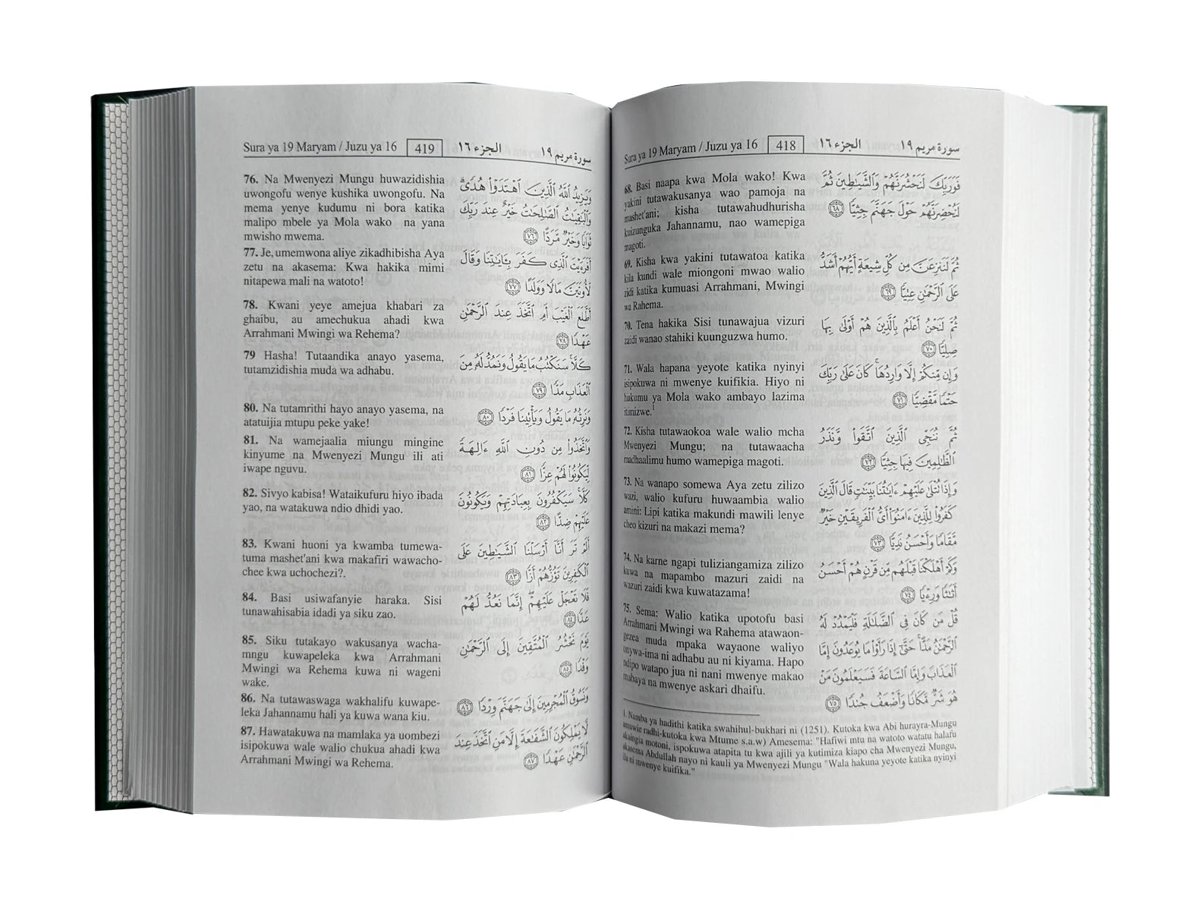 Sura ya 19 Maryam / Juzu ya 16
418
الجزء ١٦
سورة مريم ١٩
68. Basi naapa kwa Mola wako! Kwa
yakini tutawakusanya wao pamoja na
mashet'ani; kisha tutawahudhurisha
kuizunguka Jahannamu, nao wamepiga
magoti.
69. Kisha kwa yakini tutawatoa katika
kila kundi wale miongoni mwao walio
zidi katika kumuasi Arrahmani, Mwingi
wa Rahema.
70. Tena hakika Sisi tunawajua vizuri
zaidi wanao stahiki kuunguzwa humo.
71. Wala hapana yeyote katika nyinyi
isipokuwa ni mwenye kuifikia. Hiyo ni
hukumu ya Mola wako ambayo lazima
itimizwe.¹
72. Kisha tutawaokoa wale walio mcha
Mwenyezi Mungu; na tutawaacha
madhaalimu humo wamepiga magoti.
73. Na wanapo somewa Aya zetu zilizo
wazi, walio kufuru huwaambia walio
amini: Lipi katika makundi mawili lenye
cheo kizuri na makazi mema?
74. Na karne ngapi tuliziangamiza zilizo
kuwa na mapambo mazuri zaidi na
wazuri zaidi kwa kuwatazama!
75. Sema: Walio katika upotofu basi
Arrahmani Mwingi wa Rahema atawaon-
gezea muda mpaka wayaone waliyo
onywa-ima ni adhabu au ni kiyama. Hapo
ndipo watapo jua ni nani mwenye makao
mabaya na mwenye askari dhaifu.
فَوَرَبِّكَ لَنَحْشُرَنَّهُمْ وَالشَّيَاطِينَ ثُمَّ
لَنُحْضِرَنَّهُمْ حَوْلَ جَهَنَّمَ جِثِيًّا ٦٨
ثُمَّ لَنَنزِعَنَّ مِن كُلِّ شِيعَةٍ أَيُّهُمْ أَشَدُّ
عَلَى الرَّحْمَٰنِ عِتِيًّا ٦٩
ثُمَّ لَنَحْنُ أَعْلَمُ بِالَّذِينَ هُمْ أَوْلَىٰ بِهَا
صِلِيًّا ٧٠
وَإِن مِّنكُمْ إِلَّا وَارِدُهَا كَانَ عَلَىٰ رَبِّكَ
حَتْمًا مَّقْضِيًّا ٧١
ثُمَّ نُنَجِّي الَّذِينَ اتَّقَوا وَّنَذَرُ
الظَّالِمِينَ فِيهَا جِثِيًّا ٧٢
وَإِذَا تُتْلَىٰ عَلَيْهِمْ ءَايَاتُنَا بَيِّنَاتٍ قَالَ الَّذِينَ
كَفَرُوا لِلَّذِينَ ءَامَنُوا أَيُّ الْفَرِيقَيْنِ خَيْرٌ
مَّقَامًا وَأَحْسَنُ نَدِيًّا ٧٣
وَكَمْ أَهْلَكْنَا قَبْلَهُم مِّن قَرْنٍ هُمْ أَحْسَنُ
أَثَاثًا وَرِءْيًا ٧٤
قُلْ مَن كَانَ فِي الضَّلَالَةِ فَلْيَمْدُدْ لَهُ
الرَّحْمَٰنُ مَدًّا حَتَّىٰ إِذَا رَأَوْا مَا يُوعَدُونَ إِمَّا
الْعَذَابَ وَإِمَّا السَّاعَةَ فَسَيَعْلَمُونَ مَنْ
هُوَ شَرٌّ مَّكَانًا وَأَضْعَفُ جُندًا ٧٥
1. Nasuba ya hadithi katika swahihul-bukhari ni (1251). Kutoka kwa Abi hurayra-Mungu
amuwie radhi-kutoka kwa Mtume s.a.w) Amesema: "Hafiwi mtu na watoto watatu halafu
akaingia motoni, ispokuwa atapita tu kwa ajili ya kutimiza kiapo cha Mwenyezi Mungu,
akasema Abdullah nayo ni kauli ya Mwenyezi Mungu "Wala hakuna yeyote katika nyinyi
ila ni mwenye kuifika."
Sura ya 19 Maryam / Juzu ya 16
419
الجزء ١٦
سورة مريم ١٩
76. Na Mwenyezi Mungu huwazidishia
uwongofu wenye kushika uwongofu. Na
mema yenye kudumu ni bora katika
malipo mbele ya Mola wako na yana
mwisho mwema.
77. Je, umemwona aliye zikadhibisha Aya
zetu na akasema: Kwa hakika mimi
nitapewa mali na watoto!
78. Kwani yeye amejua khabari za
ghaibu, au amechukua ahadi kwa
Arrahmani Mwingi wa Rehema?
79 Hasha! Tutaandika anayo yasema,
tutamzidishia muda wa adhabu.
80. Na tutamrithi hayo anayo yasema, na
atatuijia mtupu peke yake!
81. Na wamejaalia miungu mingine
kinyume na Mwenyezi Mungu ili ati
iwape nguvu.
82. Sivyo kabisa! Wataikufuru hiyo ibada
yao, na watakuwa ndio dhidi yao.
83. Kwani huoni ya kwamba tumewa-
tuma mashet'ani kwa makafiri wawacho-
chee kwa uchochezi?.
84. Basi usiwafanyie haraka. Sisi
tunawahisabia idadi ya siku zao.
85. Siku tutakayo wakusanya wacha-
mngu kuwapeleka kwa Arrahmani
Mwingi wa Rehema kuwa ni wageni
wake.
86. Na tutawaswaga wakhalifu kuwape-
leka Jahannamu hali ya kuwa wana kiu.
87. Hawatakuwa na mamlaka ya uombezi
isipokuwa wale walio chukua ahadi kwa
Arrahmani Mwingi wa Rehema.
وَيَزِيدُ اللَّهُ الَّذِينَ اهْتَدَوْا هُدًى
وَالْبَاقِيَاتُ الصَّالِحَاتُ خَيْرٌ عِندَ رَبِّكَ
ثَوَابًا وَخَيْرٌ مَّرَدًّا ٧٦
أَفَرَءَيْتَ الَّذِي كَفَرَ بِـَٔايَاتِنَا وَقَالَ
لَأُوتَيَنَّ مَالًا وَوَلَدًا ٧٧
أَطَّلَعَ الْغَيْبَ أَمِ اتَّخَذَ عِندَ الرَّحْمَٰنِ
عَهْدًا ٧٨
كَلَّا سَنَكْتُبُ مَا يَقُولُ وَنَمُدُّ لَهُ مِنَ
الْعَذَابِ مَدًّا ٧٩
وَنَرِثُهُ مَا يَقُولُ وَيَأْتِينَا فَرْدًا ٨٠
وَاتَّخَذُوا مِن دُونِ اللَّهِ ءَالِهَةً
لِّيَكُونُوا لَهُمْ عِزًّا ٨١
كَلَّا سَيَكْفُرُونَ بِعِبَادَتِهِمْ وَيَكُونُونَ
عَلَيْهِمْ ضِدًّا ٨٢
أَلَمْ تَرَ أَنَّا أَرْسَلْنَا الشَّيَاطِينَ عَلَى
الْكَافِرِينَ تَؤُزُّهُمْ أَزًّا ٨٣
فَلَا تَعْجَلْ عَلَيْهِمْ إِنَّمَا نَعُدُّ لَهُمْ
عَدًّا ٨٤
يَوْمَ نَحْشُرُ الْمُتَّقِينَ إِلَى الرَّحْمَٰنِ
وَفْدًا ٨٥
وَنَسُوقُ الْمُجْرِمِينَ إِلَىٰ جَهَنَّمَ وِرْدًا ٨٦
لَّا يَمْلِكُونَ الشَّفَاعَةَ إِلَّا مَنِ اتَّخَذَ عِندَ
الرَّحْمَٰنِ عَهْدًا ٨٧